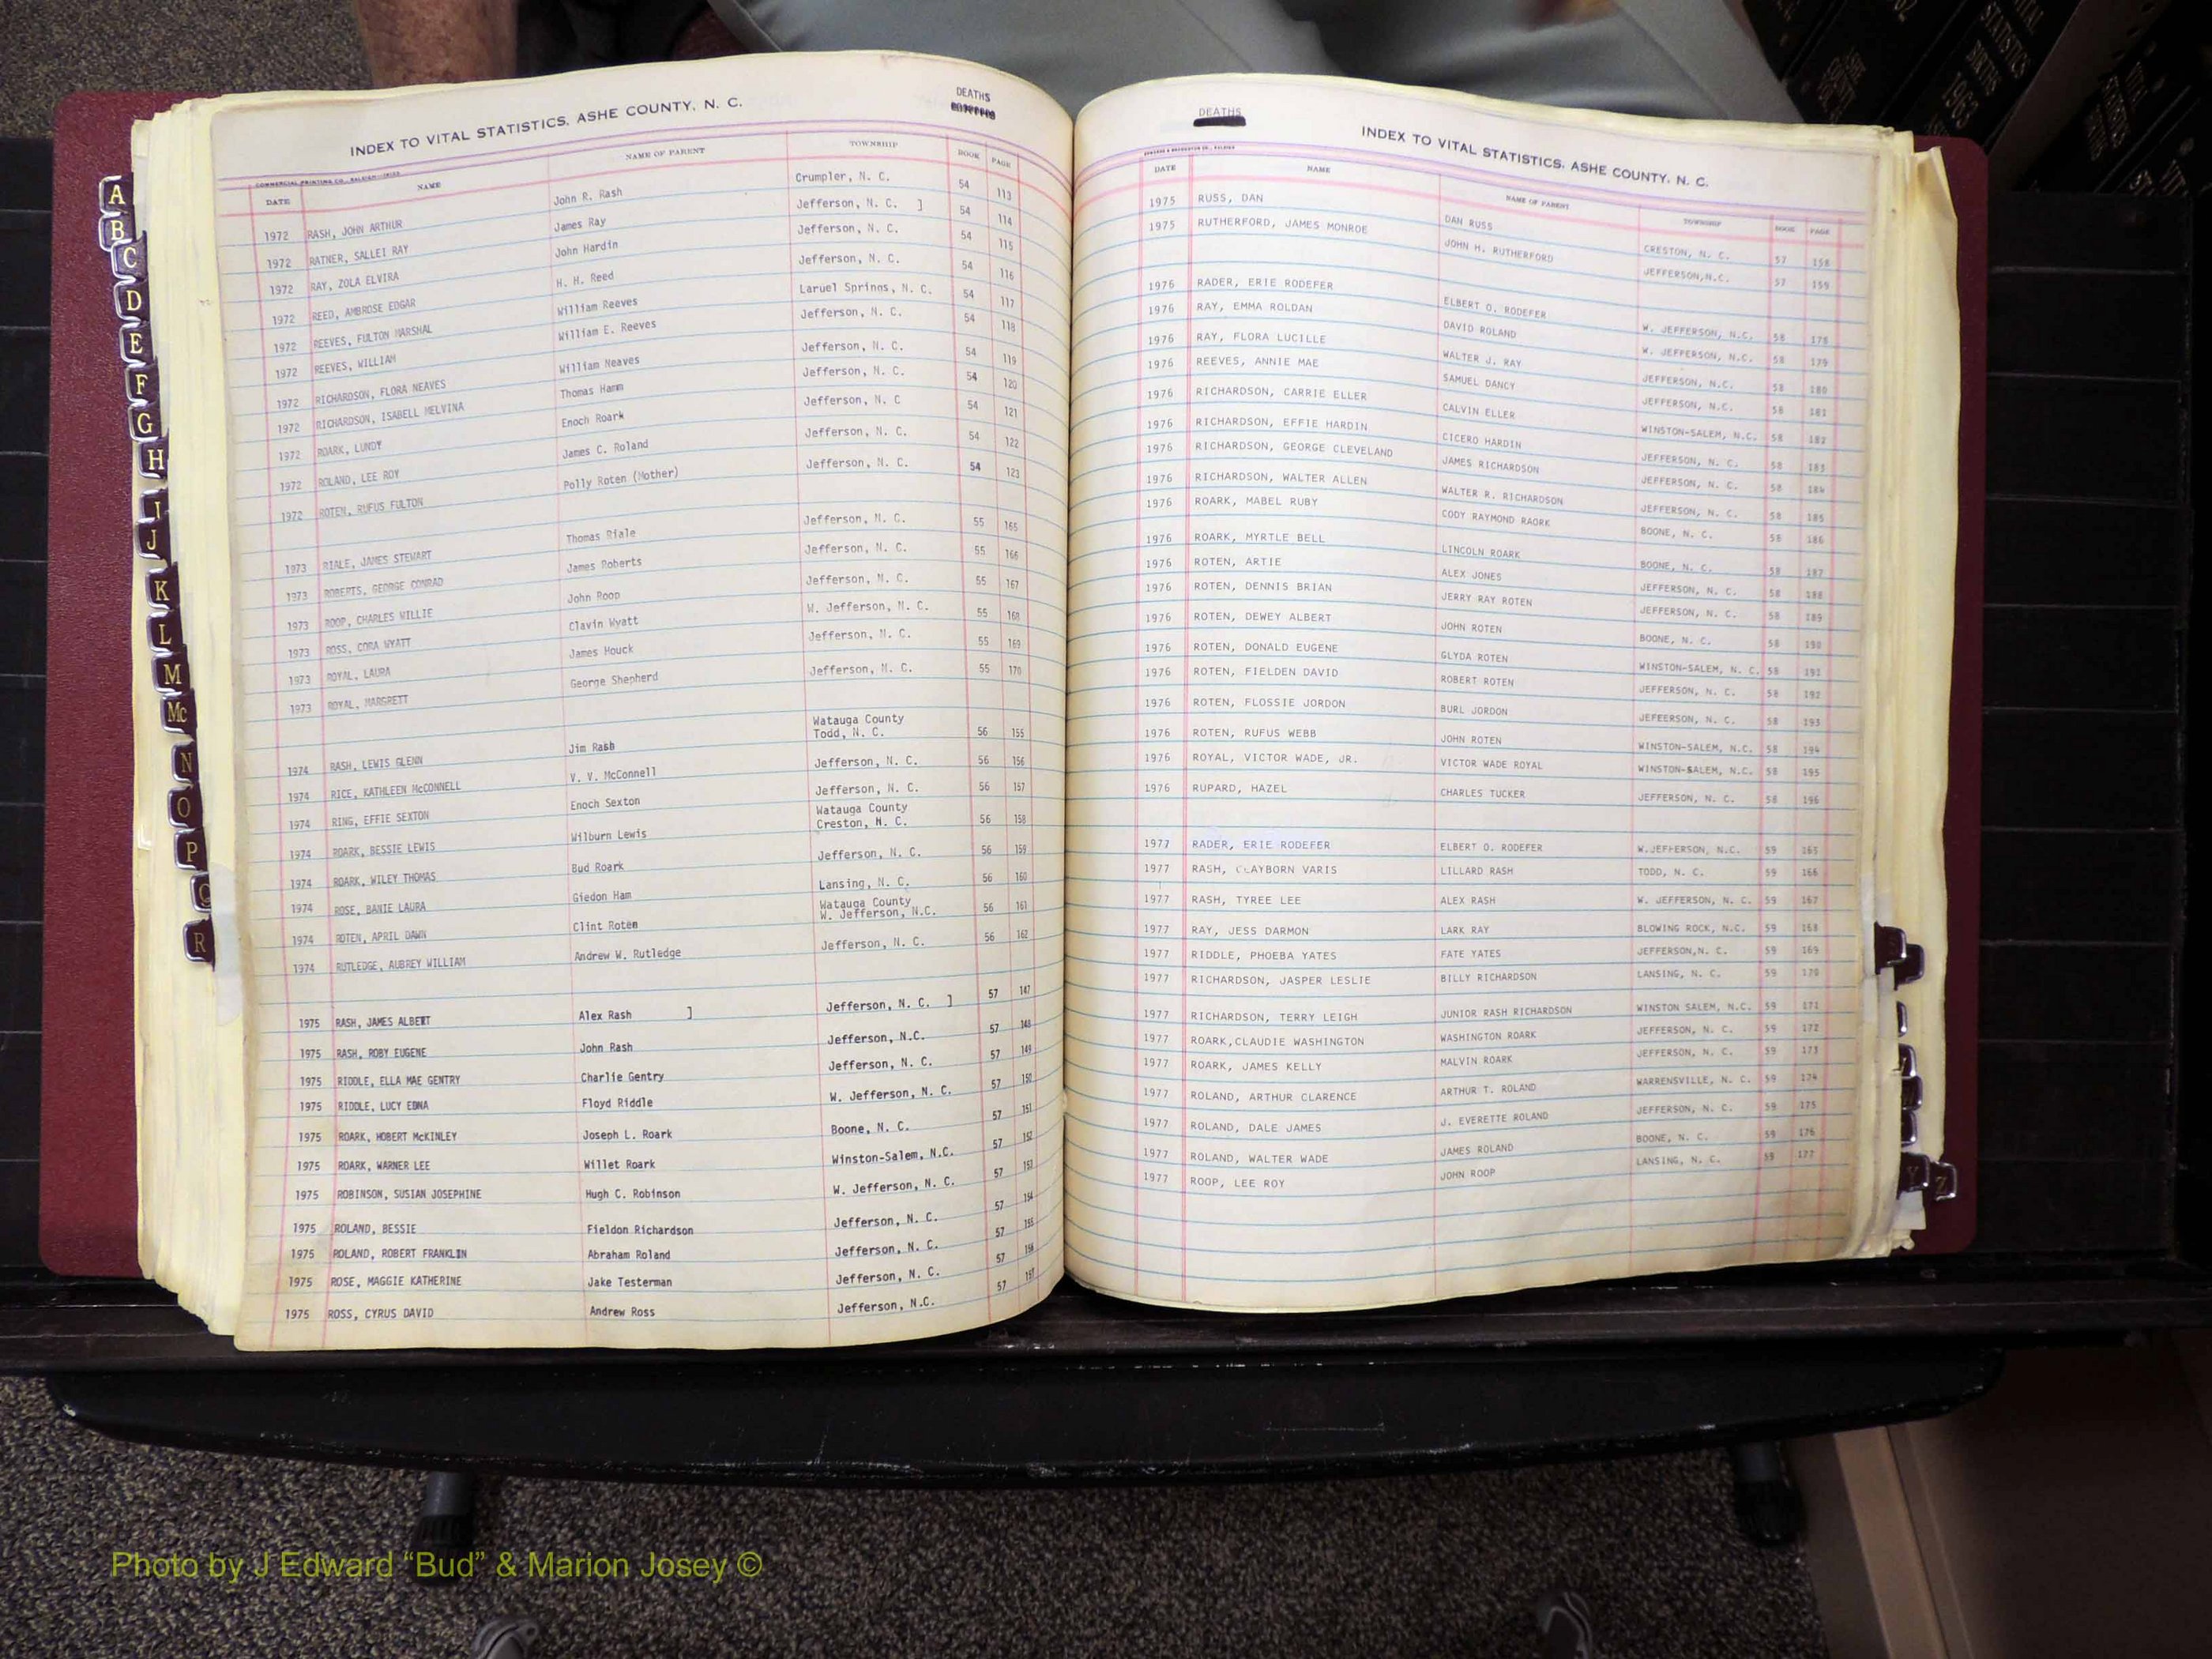 DEATHS
INDEX TO VITAL STATISTICS, ASHE COUNTY, N. C.
COMMERCIAL PRINTING CO., RALEIGH
DATE NAME NAME OF PARENT TOWNSHIP BOOK PAGE
1972 RASH, JOHN ARTHUR John R. Rash Crumpler, N. C. 54 113
1972 RATNER, SALLEI RAY James Ray Jefferson, N. C. ] 54 114
1972 RAY, ZOLA ELVIRA John Hardin Jefferson, N. C. 54 115
1972 REED, AMBROSE EDGAR H. H. Reed Jefferson, N. C. 54 116
1972 REEVES, FULTON MARSHAL William Reeves Laruel Springs, N. C. 54 117
1972 REEVES, WILLIAM William E. Reeves Jefferson, N. C. 54 118
1972 RICHARDSON, FLORA NEAVES William Neaves Jefferson, N. C. 54 119
1972 RICHARDSON, ISABELL MELVINA Thomas Hamm Jefferson, N. C. 54 120
1972 ROARK, LUNDY Enoch Roark Jefferson, N. C 54 121
1972 ROLAND, LEE ROY James C. Roland Jefferson, N. C. 54 122
1972 ROTEN, RUFUS FULTON Polly Roten (Mother) Jefferson, N. C. 54 123
1973 RIALE, JAMES STEWART Thomas Riale Jefferson, N. C. 55 165
1973 ROBERTS, GEORGE CONRAD James Roberts Jefferson, N. C. 55 166
1973 ROOP, CHARLES WILLIE John Roop Jefferson, N. C. 55 167
1973 ROSS, CORA WYATT Clavin Wyatt W. Jefferson, N. C. 55 168
1973 ROYAL, LAURA James Houck Jefferson, N. C. 55 169
1973 ROYAL, MARGRETT George Shepherd Jefferson, N. C. 55 170
Watauga County
1974 RASH, LEWIS GLENN Jim Rash Todd, N. C. 56 155
1974 RICE, KATHLEEN McCONNELL V. V. McConnell Jefferson, N. C. 56 156
1974 RING, EFFIE SEXTON Enoch Sexton Jefferson, N. C. 56 157
Watauga County
1974 ROARK, BESSIE LEWIS Wilburn Lewis Creston, N. C. 56 158
1974 ROARK, WILEY THOMAS Bud Roark Jefferson, N. C. 56 159
1974 ROSE, BANIE LAURA Giedon Ham Lansing, N. C. 56 160
Watauga County
1974 ROTEN, APRIL DAWN Clint Roten W. Jefferson, N.C. 56 161
1974 RUTLEDGE, AUBREY WILLIAM Andrew W. Rutledge Jefferson, N. C. 56 162
1975 RASH, JAMES ALBERT Alex Rash ] Jefferson, N. C. ] 57 147
1975 RASH, ROBY EUGENE John Rash Jefferson, N.C. 57 148
1975 RIDDLE, ELLA MAE GENTRY Charlie Gentry Jefferson, N. C. 57 149
1975 RIDDLE, LUCY EDNA Floyd Riddle W. Jefferson, N. C. 57 150
1975 ROARK, HOBERT McKINLEY Joseph L. Roark Boone, N. C. 57 151
1975 ROARK, WARNER LEE Willet Roark Winston-Salem, N.C. 57 152
1975 ROBINSON, SUSIAN JOSEPHINE Hugh C. Robinson W. Jefferson, N. C. 57 153
1975 ROLAND, BESSIE Fieldon Richardson Jefferson, N. C. 57 154
1975 ROLAND, ROBERT FRANKLIN Abraham Roland Jefferson, N. C. 57 155
1975 ROSE, MAGGIE KATHERINE Jake Testerman Jefferson, N. C. 57 156
1975 ROSS, CYRUS DAVID Andrew Ross Jefferson, N.C. 57 157
DEATHS
INDEX TO VITAL STATISTICS, ASHE COUNTY, N. C.
DATE NAME NAME OF PARENT TOWNSHIP BOOK PAGE
1975 RUSS, DAN DAN RUSS CRESTON, N. C. 57 158
1975 RUTHERFORD, JAMES MONROE JOHN H. RUTHERFORD JEFFERSON,N.C. 57 159
1976 RADER, ERIE RODEFER ELBERT O. RODEFER W. JEFFERSON, N.C. 58 178
1976 RAY, EMMA ROLDAN DAVID ROLAND W. JEFFERSON, N.C. 58 179
1976 RAY, FLORA LUCILLE WALTER J. RAY JEFFERSON, N.C. 58 180
1976 REEVES, ANNIE MAE SAMUEL DANCY JEFFERSON, N.C. 58 181
1976 RICHARDSON, CARRIE ELLER CALVIN ELLER WINSTON-SALEM, N.C. 58 182
1976 RICHARDSON, EFFIE HARDIN CICERO HARDIN JEFFERSON, N. C. 58 183
1976 RICHARDSON, GEORGE CLEVELAND JAMES RICHARDSON JEFFERSON, N. C. 58 184
1976 RICHARDSON, WALTER ALLEN WALTER R. RICHARDSON JEFFERSON, N. C. 58 185
1976 ROARK, MABEL RUBY CODY RAYMOND RAORK BOONE, N. C. 58 186
1976 ROARK, MYRTLE BELL LINCOLN ROARK BOONE, N. C. 58 187
1976 ROTEN, ARTIE ALEX JONES JEFFERSON, N. C. 58 188
1976 ROTEN, DENNIS BRIAN JERRY RAY ROTEN JEFFERSON, N. C. 58 189
1976 ROTEN, DEWEY ALBERT JOHN ROTEN BOONE, N. C. 58 190
1976 ROTEN, DONALD EUGENE GLYDA ROTEN WINSTON-SALEM, N. C. 58 191
1976 ROTEN, FIELDEN DAVID ROBERT ROTEN JEFFERSON, N. C. 58 192
1976 ROTEN, FLOSSIE JORDON BURL JORDON JEFEERSON, N. C. 58 193
1976 ROTEN, RUFUS WEBB JOHN ROTEN WINSTON-SALEM, N.C. 58 194
1976 ROYAL, VICTOR WADE, JR. VICTOR WADE ROYAL WINSTON-SALEM, N.C. 58 195
1976 RUPARD, HAZEL CHARLES TUCKER JEFFERSON, N. C. 58 196
1977 RADER, ERIE RODEFER ELBERT O. RODEFER W.JEFFERSON, N.C. 59 165
1977 RASH, CLAYBORN VARIS LILLARD RASH TODD, N. C. 59 166
1977 RASH, TYREE LEE ALEX RASH W. JEFFERSON, N. C. 59 167
1977 RAY, JESS DARMON LARK RAY BLOWING ROCK, N.C. 59 168
1977 RIDDLE, PHOEBA YATES FATE YATES JEFFERSON,N. C. 59 169
1977 RICHARDSON, JASPER LESLIE BILLY RICHARDSON LANSING, N. C. 59 170
1977 RICHARDSON, TERRY LEIGH JUNIOR RASH RICHARDSON WINSTON SALEM, N.C. 59 171
1977 ROARK,CLAUDIE WASHINGTON WASHINGTON ROARK JEFFERSON, N. C. 59 172
1977 ROARK, JAMES KELLY MALVIN ROARK JEFFERSON, N. C. 59 173
1977 ROLAND, ARTHUR CLARENCE ARTHUR T. ROLAND WARRENSVILLE, N. C. 59 174
1977 ROLAND, DALE JAMES J. EVERETTE ROLAND JEFFERSON, N. C. 59 175
1977 ROLAND, WALTER WADE JAMES ROLAND BOONE, N. C. 59 176
1977 ROOP, LEE ROY JOHN ROOP LANSING, N. C. 59 177
A
B
C
D
E
F
G
H
I
J
K
L
M
Mc
N
O
P
Q
R
Y
Z
VITAL STATISTICS
BIRTHS
1963
Photo by J Edward “Bud” & Marion Josey ©